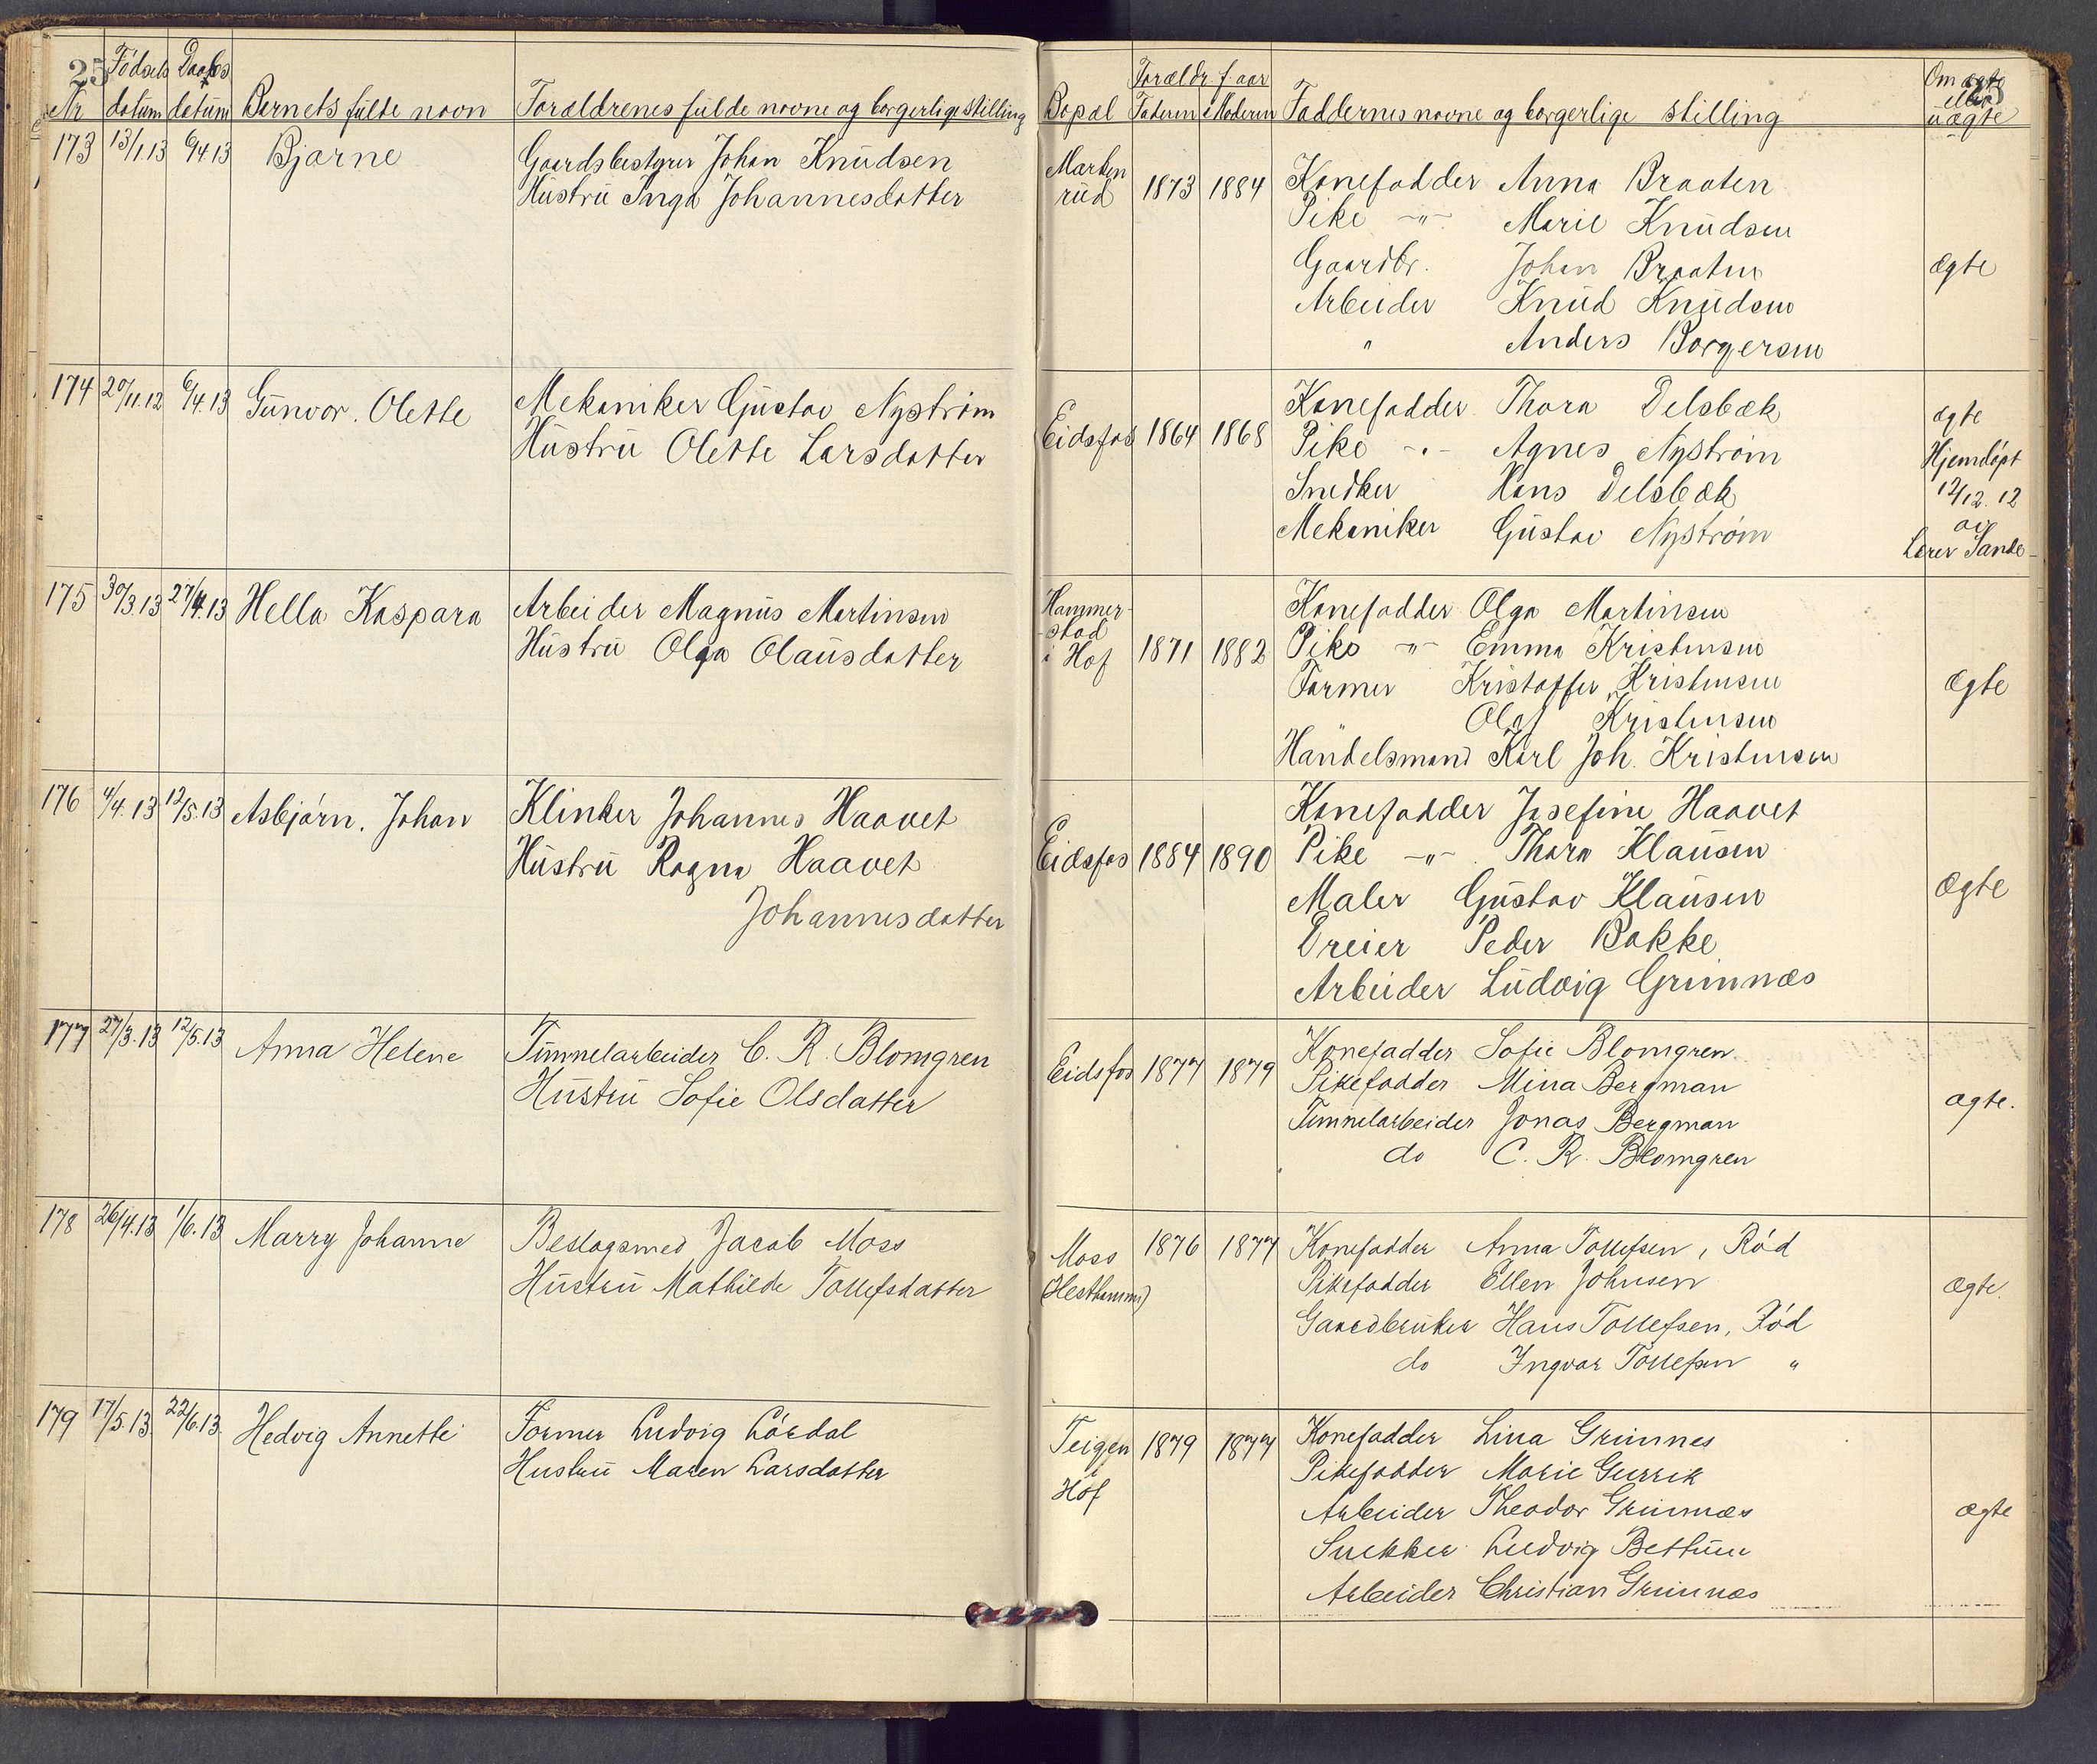 25
Nr
Fødsels
datum
Daabs
datum
Barnets fulde navn
Forældrenes fulde navne og borgerlige stilling
Bopæl
Forældr. f. aar
Faderen
Moderen
Faddernes navne og borgerlige stilling
Om ægte
eller
uægte
173
13/1.13
6/4 13
Bjarne
Gaardsbestyrer Johan Knudsen
Hustru Inga Johannesdatter
Marken
rud
1873
1884
Konefadder Anna Braaten
Pike -"- Marie Knudsen
Gaardbr. Johan Braaten
Arbeider Knud Knudsen
" Anders Borgersen
ægte
174
20/11.12
6/4.13
Gunvor. Olette
Mekaniker Gustav Nystrøm
Hustru Olette Larsdatter
Eidsfos
1864
1868
Konefadder Thora Delsbæk
Pike -"- Agnes Nystrøm
Snedker Hans Delsbæk
Mekaniker Gustav Nystrøm
ægte
Hjemdøpt
12/12. 12
av
Lærer Sande
175
30/3.13
27/4.13
Hella Kaspara
Arbeider Magnus Martinsen
Hustru Olga Olausdatter
Hammer-
-stad
i Hof
1871
1882
Konefadder Olga Martinsen
Pike -"- Emma Kristensen
Former Kristoffer Kristensen
" Olaf Kristensen
Handelsmand Karl Joh. Kristensen
Ægte
176
4/4.13
12/5.13
Asbjørn. Johan
Klinker Johannes Haavet
Hustru Ragna Haavet
Johannesdatter
Eidsfos
1884
1890
Konefadder Josefine Haavet
Pike -"- Thora Klausen
Maler Gustav Klausen
Dreier Peder Bakke
Arbeider Ludvig Grimnæs
Ægte
177
27/3.13
12/5.13
Anna Helene
Tunnelarbeider C. R. Blomgren
Hustru Sofie Olsdatter
Eidsfos
1877
1879
Konefadder Sofie Blomgren
Pikefadder Mina Bergman
Tunnelarbeider Jonas Bergman
do C. R. Blomgren
ægte.
178
26/4.13
1/6.13
Marry Johanne
Beslagsmed Jacob Moss
Hustru Mathilde Tollefsdatter
Moss
(Hesthammer)
1876
1877
Konefadder Anna Tollefsen, Rød
Pikefadder Ellen Johnsen
Gaardbruker Hans Tollefsen, Rød
do Ingvar Tollefsen "
ægte.
179
17/5.13
22/6.13
Hedvig Annette
Former Ludvig Lørdal
Hustru Maren Larsdatter
Teigen
i
Hof
1879
1877
Konefadder Lina Grimnes
Pikefadder Marie Gurrik
Arbeider Theodor Grimnæs
Snekker Ludvig Bettum
Arbeider Christian Grimnæs
ægte